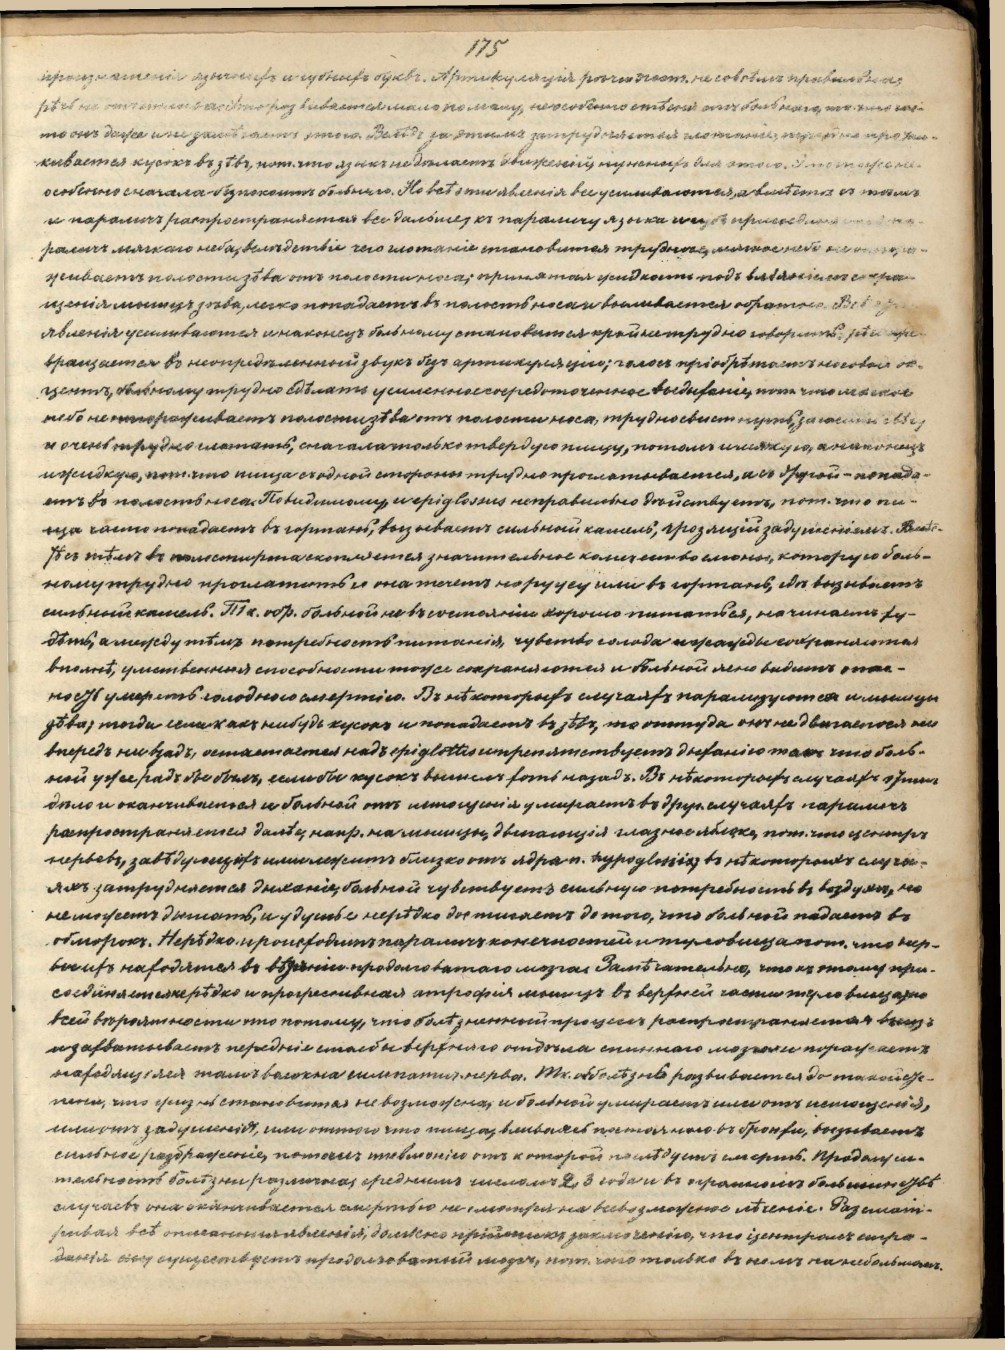 175
произношенія язычныхъ и губныхъ буквъ. Артикуляція рѣчи пот. не совсѣмъ правильна,
рѣчь не отчетлива развивается мало по малу, не особенно стѣсняя больнаго, такъ что час-
то онъ даже и не замѣчаетъ этого. Вслѣдъ за этимъ затрудняется глотаніе,
кивается кусокъ въ зѣвъ, пот. что языкъ не дѣлаетъ движеній, нужныхъ для этого. Это тоже не
особенно сначала безпокоитъ больнаго. Но всѣ эти явленія все усиливаются, а вмѣстѣ съ тѣмъ
и параличъ распространяется все дальше, къ параличу языка и губъ присоединяется па-
раличъ мягкаго неба, вслѣдствіе чего глотаніе становится труднѣе, мягкое небо не отгора-
живаетъ полости зѣва отъ полости носа; принятая жидкость подъ вліяніемъ сокра-
щенія мышцъ зѣва, легко попадаетъ въ полость носа и выливается обратно. Всѣ эти
явленія усиливаются и наконецъ больному становится крайне трудно говорить, рѣчь пре-
вращается въ неопредѣленный звукъ безъ артикуляціи; голосъ пріобрѣтаетъ носовой ак-
центъ, больному трудно сдѣлать усиленное сосредоточенное выдыханіе, пот. что мягкое
небо не отгораживаетъ полости зѣва отъ полости носа, трудно свистнуть, загасить свѣчу
и очень трудно глотать, сначала только твердую пищу, потомъ и мягкую, а наконецъ
и жидкую, пот. что пища съ одной стороны трудно проглатывается, а съ другой – попада-
етъ въ полость носа. Повидимому, и epiglossus неправильно дѣйствуетъ, пот. что пи-
ща часто попадаетъ въ гортань, вызываетъ сильный кашель, грозящій задушеніемъ. Вмѣс-
тѣ съ тѣмъ въ полости рта скопляется значительное количество слюны, которую боль-
ному трудно проглатить и она течетъ наружу или въ гортань, гдѣ вызываетъ
сильный кашель. Так. обр. больной не въ состояніи хорошо питаться, начинаетъ ху-
дѣть, а между тѣмъ потребность питанія, чувство голода и жажды сохраняются
вполнѣ, умственныя способности тоже сохраняются и больной ясно видитъ опас-
ность умереть голодною смертію. Въ нѣкоторыхъ случаяхъ парализуются и мышцы
зѣва; тогда если какъ нибудь кусокъ и попадаетъ въ зѣвъ, то оттуда онъ не двигается ни
впередъ ни взадъ, останется надъ epiglottis и препятствуетъ дыханію такъ что боль-
ной уже радъ бы былъ, если бы кусокъ вышелъ хоть назадъ. Въ нѣкоторыхъ случаяхъ этимъ
дѣло и оканчивается и больной отъ истощенія умираетъ въ друг. случаяхъ параличъ
распространяется далѣе, напр. на мышцы, двигающія глазное яблоко, пот. что центръ
нервовъ, завѣдующихъ ими лежитъ близко отъ ядра n. hypoglossi; въ нѣкоторыхъ случа-
яхъ затрудняется дыханіе, больной чувствуетъ сильную потребность въ воздухѣ, но
не можетъ дышать, и удушье нерѣдко достигаетъ до того, что больной падаетъ въ
обморокъ. Нерѣдко происходитъ параличъ конечностей и туловища пот. что нер-
вы ихъ находятся въ вѣдѣніи продолговатаго мозга. Замѣчательно, что къ этому при-
соединяется нерѣдко и прогрессивная атрофія мышцъ въ верхней части туловища, по
всей вѣроятности это потому, что болѣзненный процессъ распространяется внизъ
и захватываетъ передніе столбы верхняго отдѣла спиннаго мозга и поражаетъ
находящіяся тамъ волокна симпатич. нерва. Так. об. болѣзнь развивается до такой сте-
пени, что жизнь становится невозможна, и больной умираетъ или отъ истощенія,
или отъ задушенія, или оттого что пища, вливаясь постоянно въ бронхи, вызываетъ
сильное раздраженіе, потомъ пневмонію отъ которой послѣдуетъ смерть. Продолжи-
тельность болѣзни различна, среднимъ числомъ 2, 3 года и въ огромномъ большинствѣ
случаевъ она оканчивается смертью не смотря на всевозможное лѣченіе. Разсмат-
ривая всѣ описанныя явленія, должно прійти къ заключенію, что центромъ стра-
данія существуетъ продолговатый мозгъ, пот. что только въ немъ на небольшом.